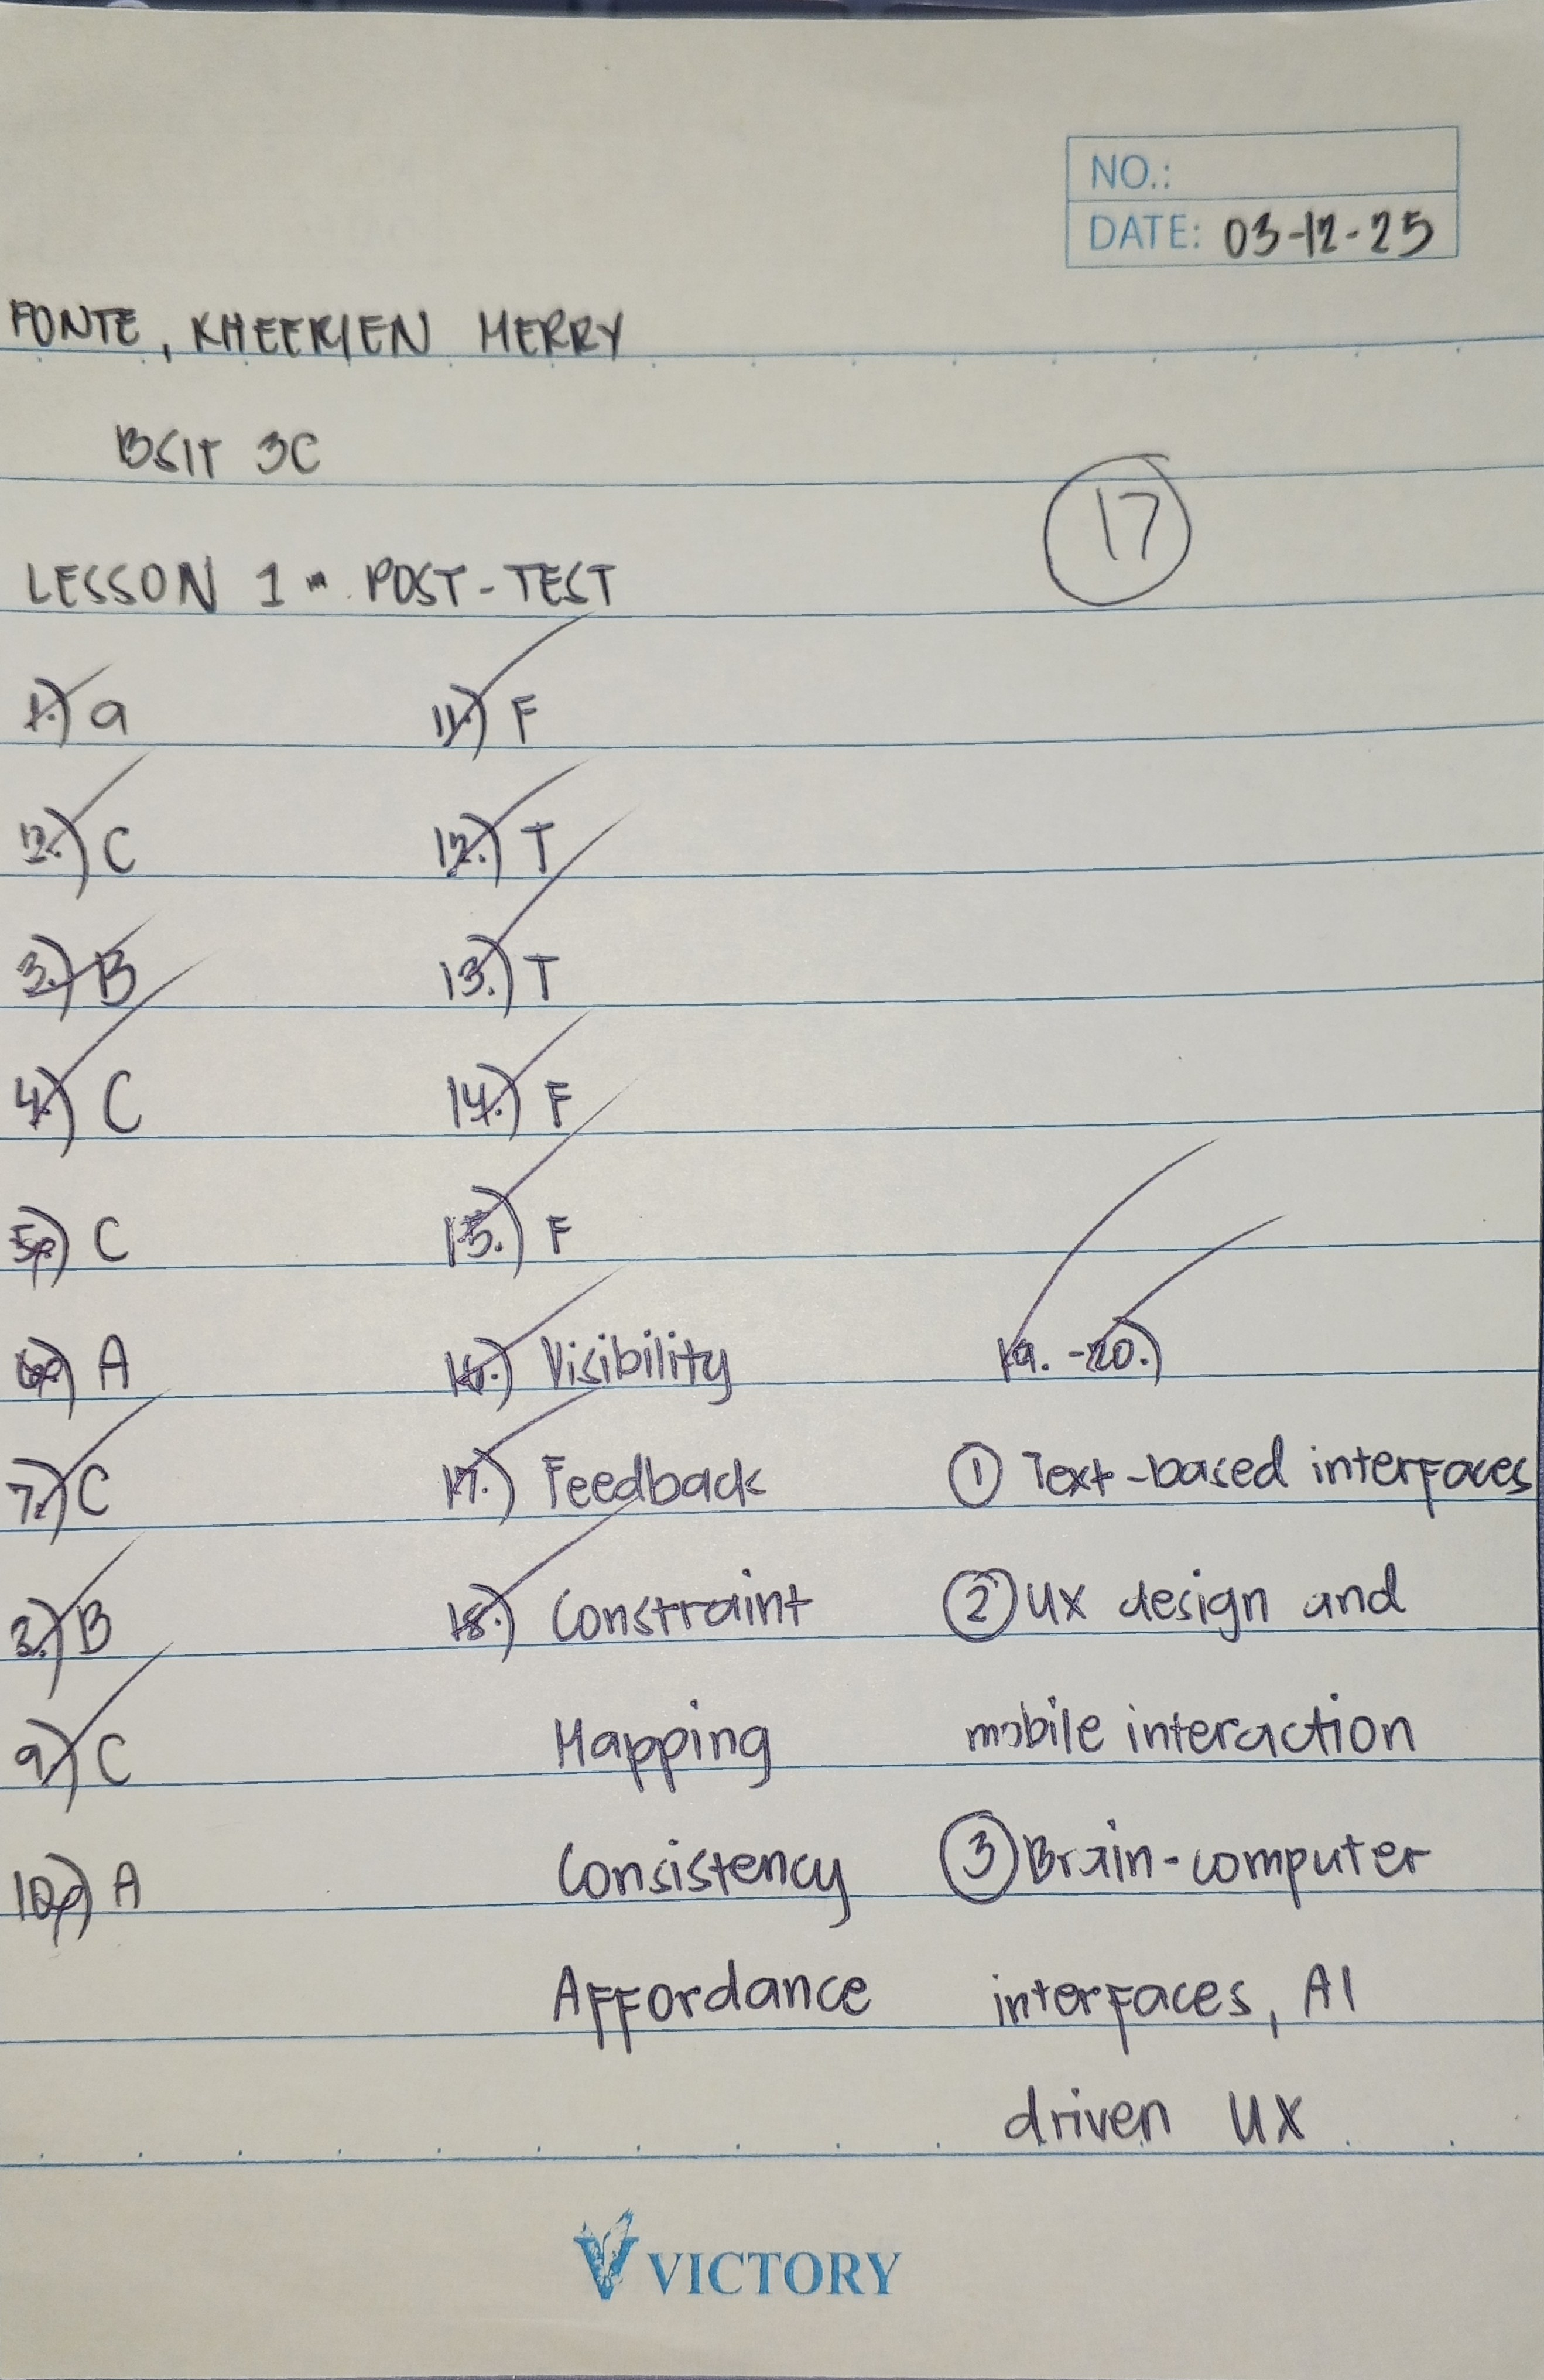 NO.:
DATE: 03-12-25
FONTE, KHEERIEN MERRY
BSIT 3C
17
LESSON 1 - POST-TEST
1.) a
2.) C
3.) B
4.) C
5.) C
6.) A
7.) C
8.) B
9.) C
10.) A
11.) F
12.) T
13.) T
14.) F
15.) F
16.) Visibility
17.) Feedback
18.) Constraint
Mapping
Consistency
Affordance
19. -20.)
① Text-based interfaces
② UX design and
mobile interaction
③ Brain-computer
interfaces, AI
driven UX
VICTORY